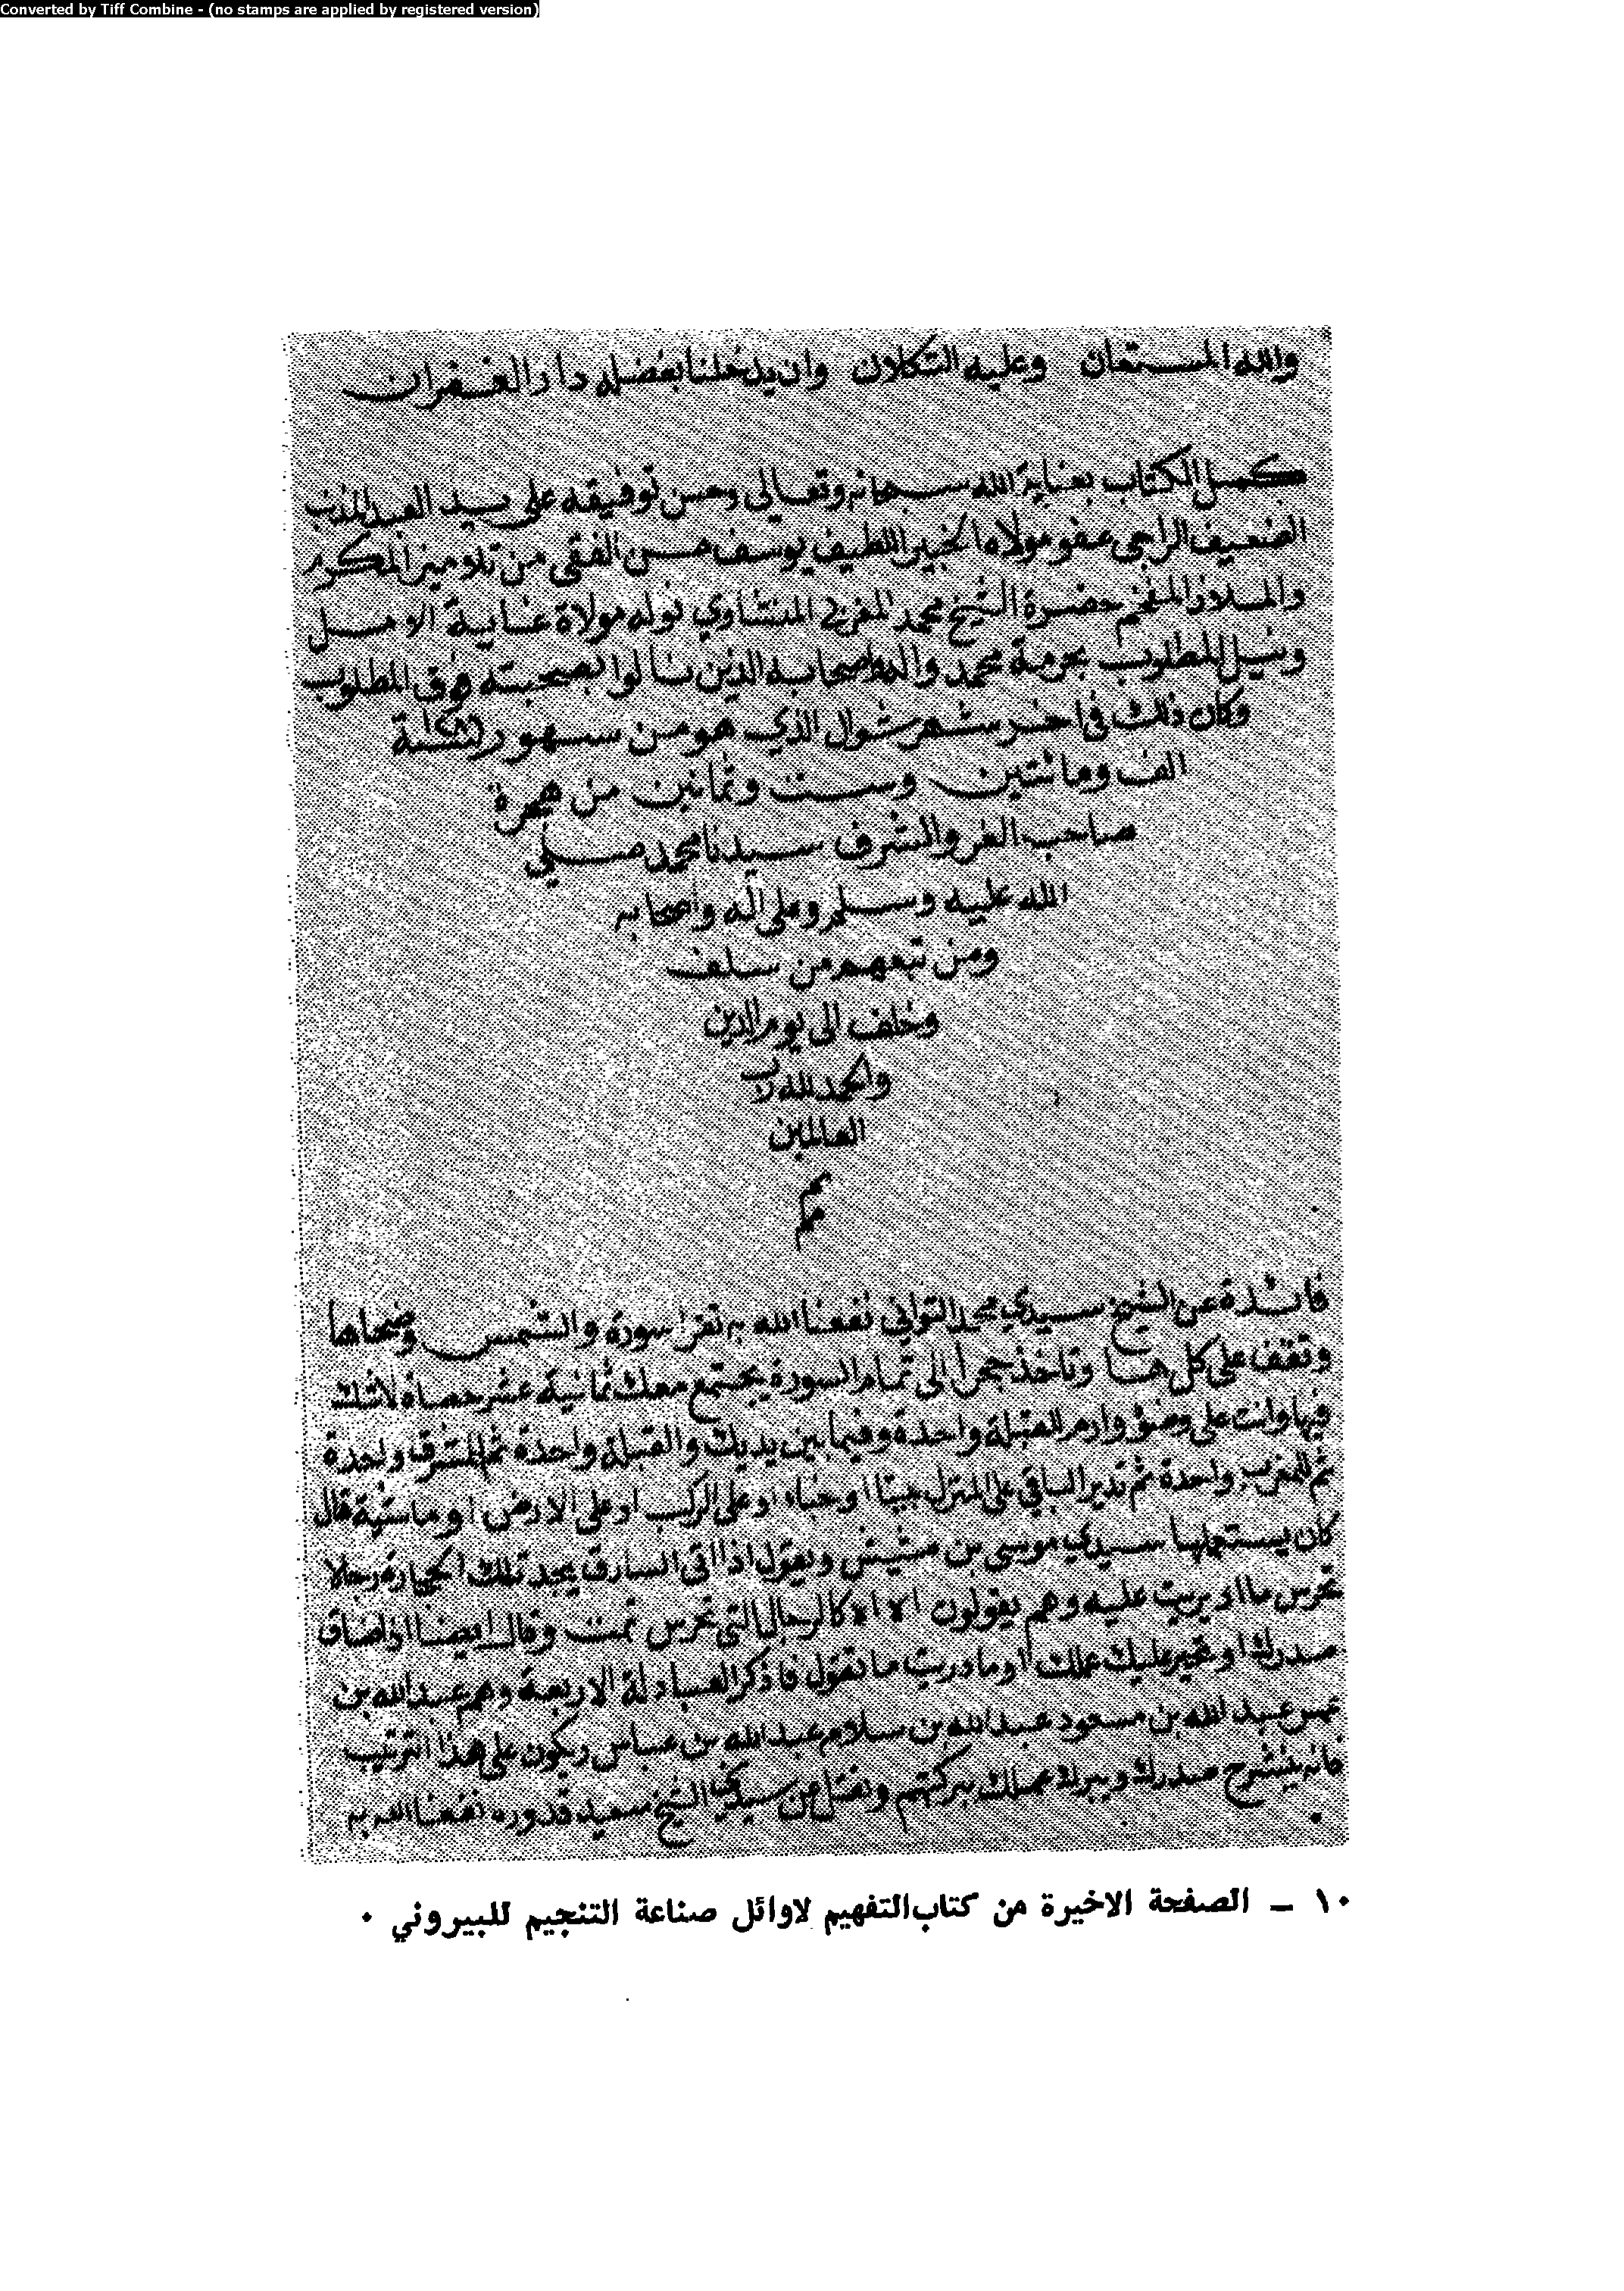 Converted by Tiff Combine - (no stamps are applied by registered version)
والله المستعان وعليه التكلان وان يدخلنا بفضله دار الغفران
كمل الكتاب بعناية الله سبحانه وتعالى وحسن توفيقه على يد العبد المذنب
الضعيف الراجى عفو مولاه الخبير اللطيف يوسف حسن الفقى من تلاميز المكرم
والملاذ المفخم حضرة الشيخ محمد المغربي نوله مولاة غاية الامل
ونيل المطلوب بحرمة محمد واله واصحابه الذين نالوا بصحبته فوق المطلوب
وكان ذلك في اخر شهر شوال الذي هو من شهور سنة
الف ومائتين وست وثمانين من هجرة
صاحب العز والشرف سيدنا محمد صلي
الله عليه وسلم وعلى اله واصحابه
ومن تبعهم من سلف
وخلف الى يوم الدين
والحمد لله رب
العالمين
فائدة عن الشيخ سيدي محمد التواتي نفعنا الله به تقرا سورة والشمس وضحاها
وتقف على كل ها وتاخذ حجرا الى تمام السورة يجتمع معك ثمانية عشر حصاة لاشك
فيها وانت على وضؤ وارم للقبلة واحدة وفيما بين يديك والقبلة واحدة ثم للمشرق واحدة
ثم للمغرب واحدة ثم تدير الباقي على المنزل بيتا او خباء او على الركب او على الارض او ماشية قال
كان يستعملها سيدي موسى بن مشيش ويقول اذا اتى السارق يجد تلك الحجارة رجالا
تحرس ما اديرت عليه وهم يقولون الا الا كالرجال التي تحرس تمت وقال ايضا اذا ضاق
صدرك او تحير عليك عملك او ما دريت ما تقول فاذكر العبادلة الاربعة وهم عبد الله بن
عمر عبد الله بن مسعود عبد الله بن سلام عبد الله بن عباس ويكون على هذا الترتيب
فانه ينشرح صدرك ببركتهم ونقل عن الشيخ سعيد قدوره نفعنا الله به
١٠ – الصفحة الاخيرة من كتاب التفهيم لاوائل صناعة التنجيم للبيروني ٠